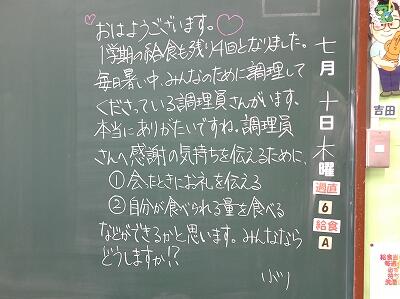 おはようございます。
1学期の給食も残り4回となりました。
毎日暑い中、みんなのために調理して
くださっている調理員さんがいます。
本当にありがたいですね。調理員
さんへ感謝の気持ちを伝えるために、
①会ったときにお礼を伝える
②自分が食べられる量を食べる
などができるかと思います。みんななら
どうしますか!?
七月十日木曜
週直
6
給食
A
吉田